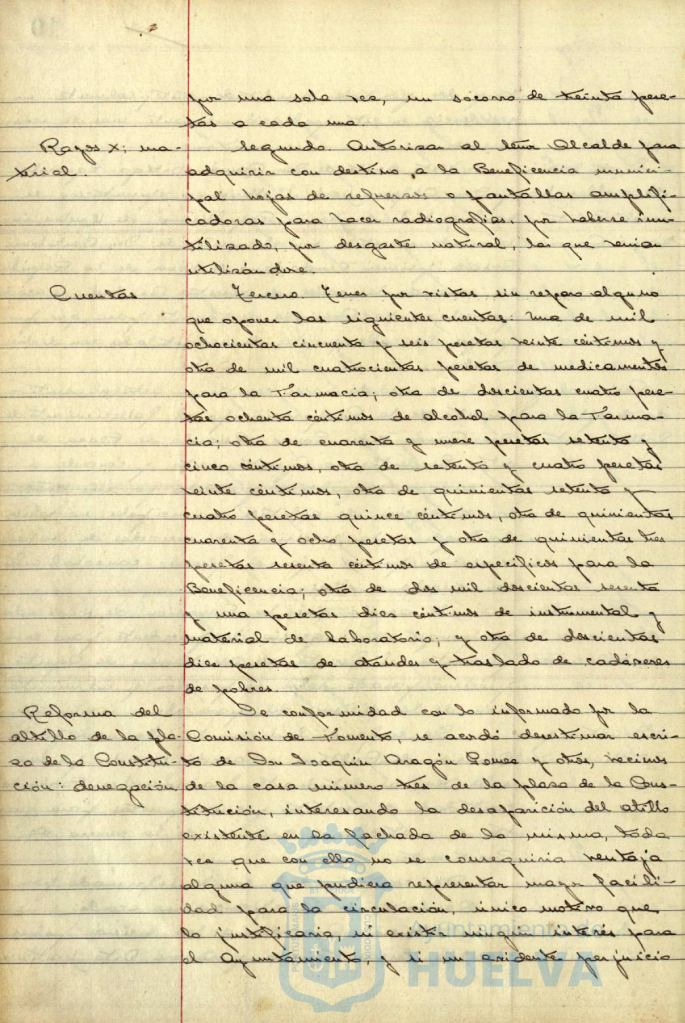 por una sola vez, un socorro de treinta pese-
tas a cada una.
Rayos X; ma-
terial.
Segundo. Autorizar al Señor Alcalde para
adquirir con destino a la Beneficencia munici-
pal hojas de refuerzos o pantallas amplifi-
cadoras para hacer radiografías, por haberse inu-
tilizado, por desgaste natural, las que venían
utilizándose.
Cuentas
Tercero. Tener por vistas, sin reparo alguno
que oponer las siguientes cuentas: Una de mil
ochocientas cincuenta y seis pesetas veinte céntimos y
otra de mil cuatrocientas pesetas de medicamentos
para la Farmacia; otra de doscientas cuatro pese-
tas ochenta céntimos de alcohol para la Farma-
cia; otra de cuarenta y nueve pesetas setenta y
cinco céntimos, otra de setenta y cuatro pesetas
veinte céntimos, otra de quinientas setenta y
cuatro pesetas quince céntimos, otra de quinientas
cuarenta y ocho pesetas y otra de quinientas tres
pesetas sesenta céntimos de específicos para la
Beneficencia; otra de dos mil doscientas sesenta
y una pesetas diez céntimos de instrumental y
material de laboratorio; y otra de doscientas
diez pesetas de ataudes y traslado de cadáveres
de pobres.
Reforma del
altillo de la pla-
za de la Constitu-
ción: denegación
De conformidad con lo informado por la
Comisión de Fomento, se acordó desestimar escri-
to de Don Joaquín Aragón Gomez y otros, vecinos
de la casa número tres de la plaza de la Cons-
titución, interesando la desaparición del altillo
existente en la fachada de la misma, toda
vez que con ello no se conseguiría ventaja
alguna que pudiera representar mayor facili-
dad para la circulación, único motivo que
lo justificaría, ni existir ningún interés para
el Ayuntamiento, y si un evidente perjuicio
Ayuntamiento
HUELVA